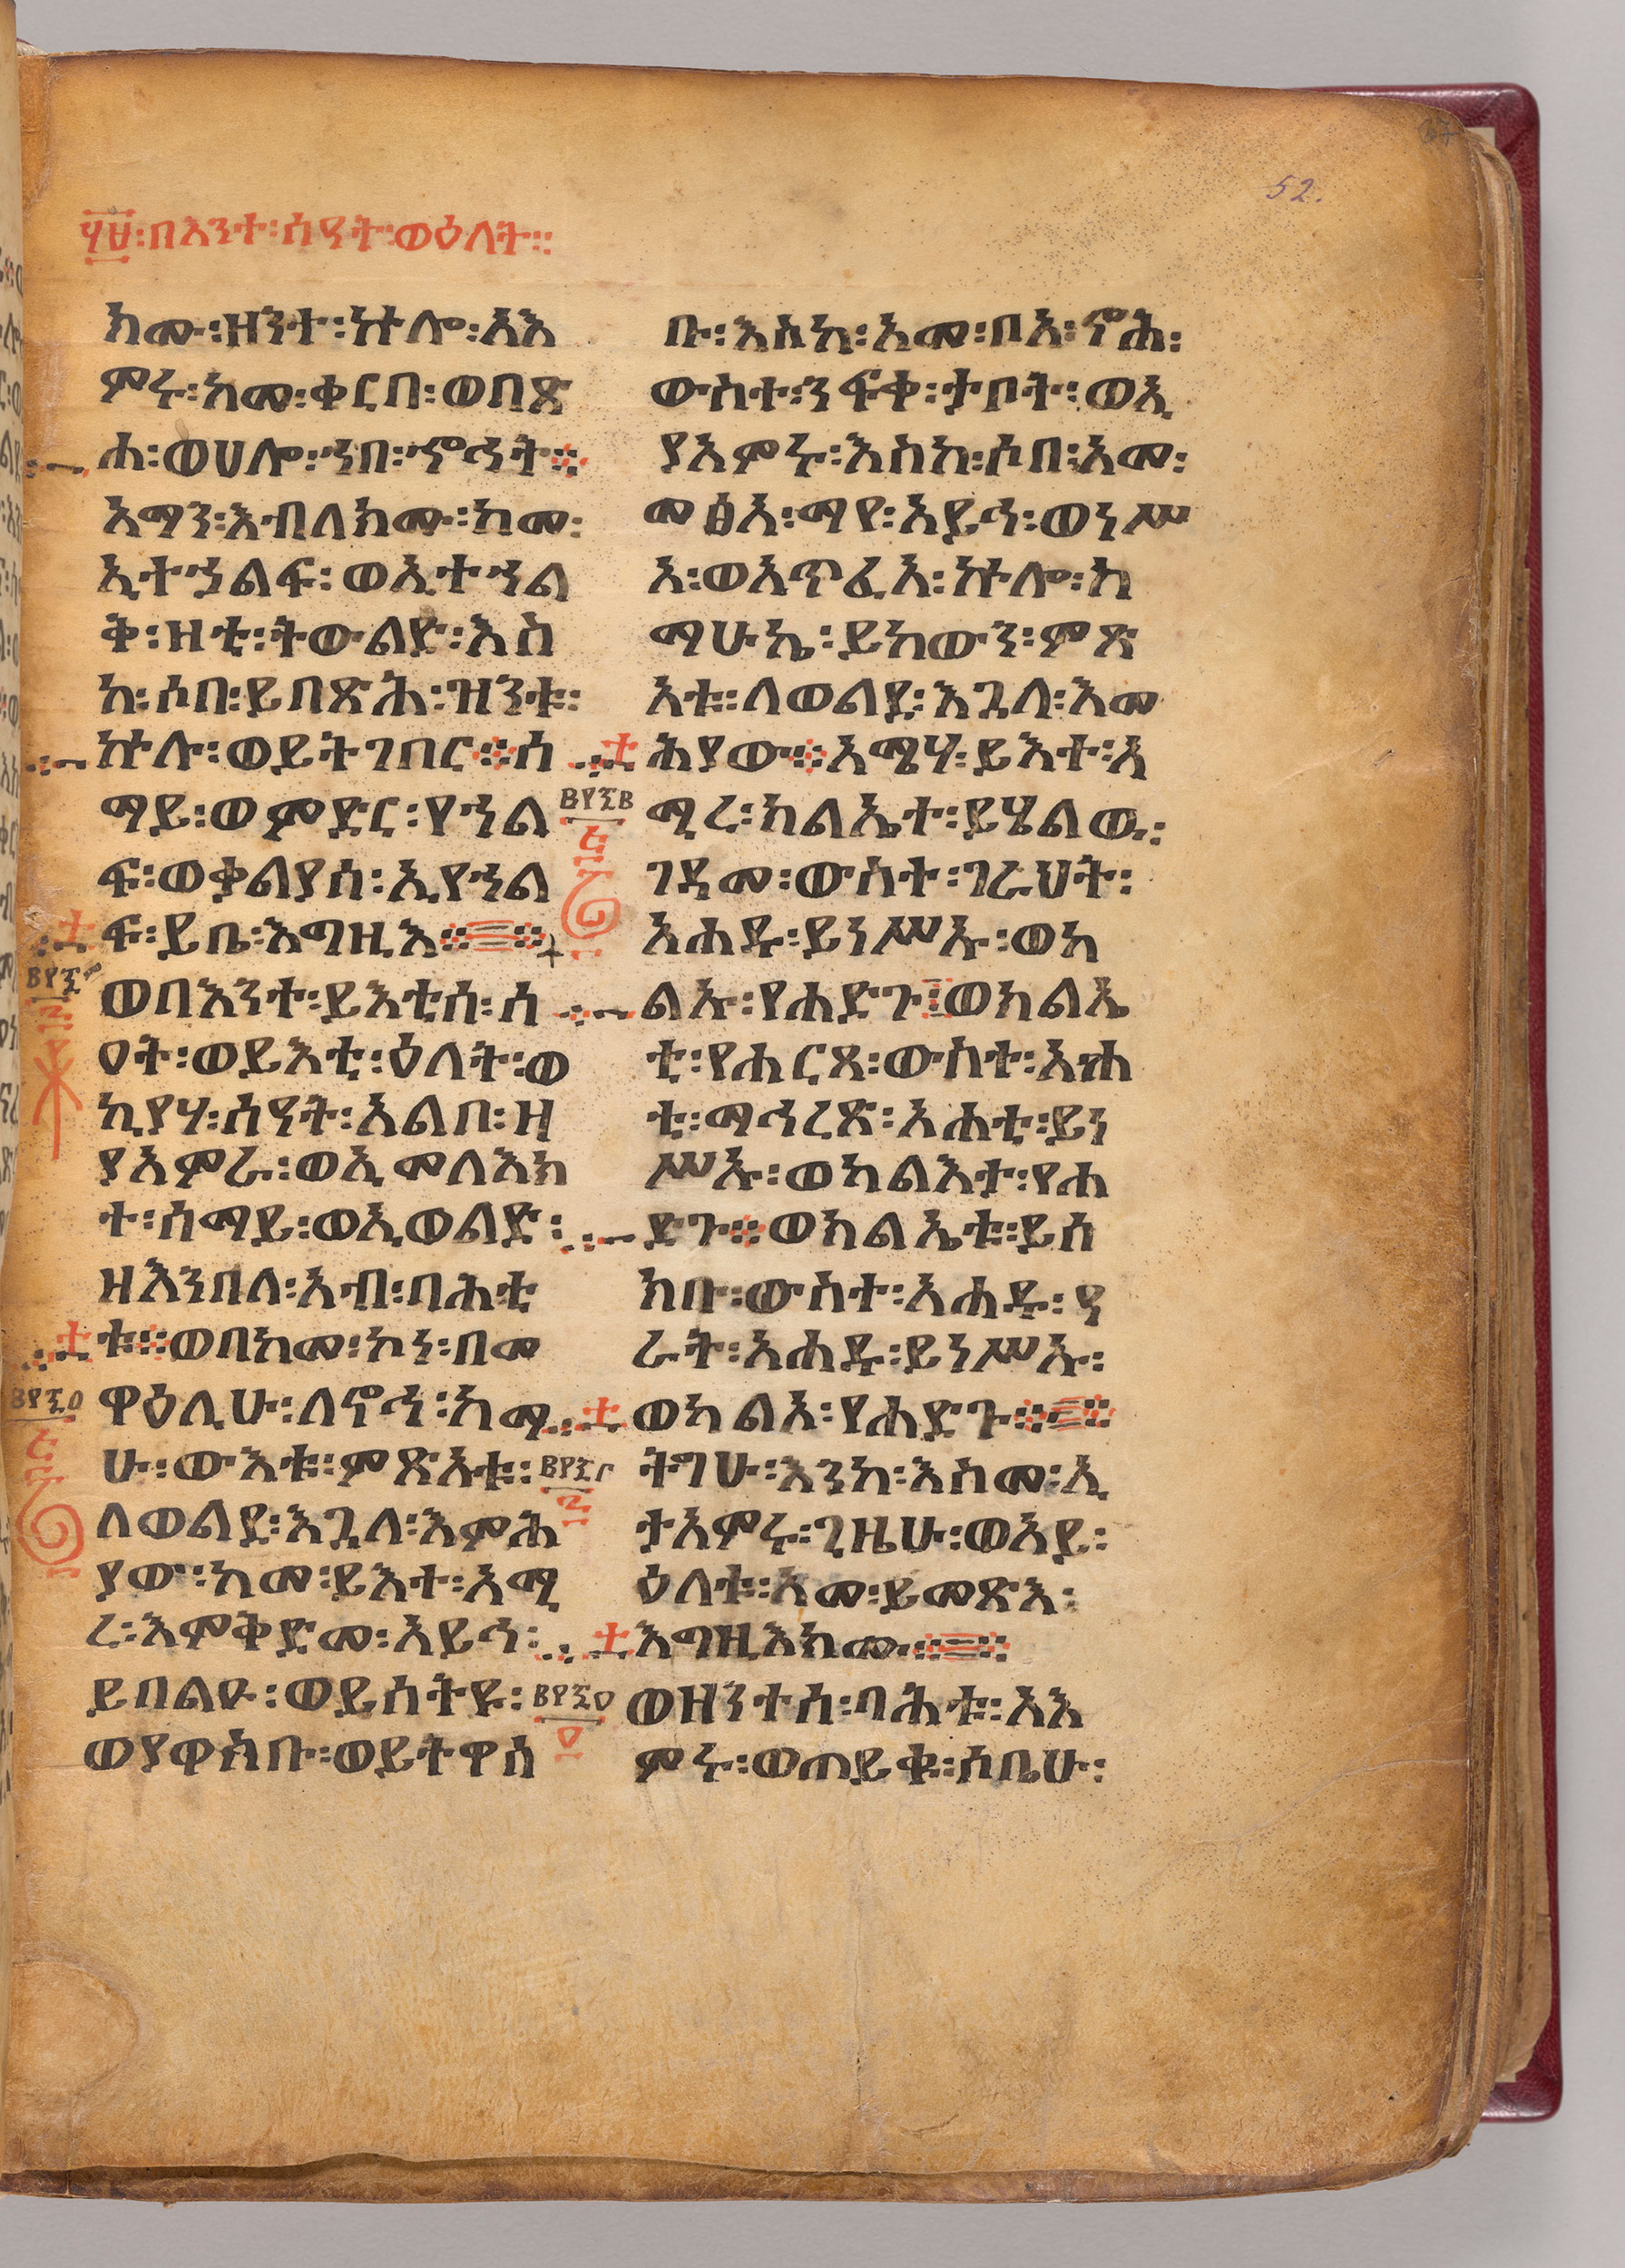 52.
፶፱፡በእንተ፡ሰዓት፡ወዕለት፡፡
ክሙ፡ዘንተ፡ኵሎ፡አእ
ምሩ፡ከመ፡ቀርበ፡ወበጽ
ሐ፡ወሀሎ፡ኀበ፡ኆኅት፨
አማን፡እብለክሙ፡ከመ፡
ኢተኃልፍ፡ወኢተኀል
ቅ፡ዛቲ፡ትውልድ፡እስ
ከ፡ሶበ፡ይበጽሕ፡ዝንቱ፡
ኵሉ፡ወይትገበር፨ሰ
ማይ፡ወምድር፡የኀል
ፍ፡ወቃልየሰ፡ኢየኀል
ፍ፡ይቤ፡እግዚእ፨
ወበእንተ፡ይእቲሰ፡ሰ
ዐት፡ወይእቲ፡ዕለት፡ወ
ኪያሃ፡ሰዓት፡አልቦ፡ዘ
ያአምራ፡ወኢመለእክ
ተ፡ሰማይ፡ወኢወልድ፡
ዘእንበለ፡አብ፡ባሕቲ
ቱ፨ወበከመ፡ኮነ፡በመ
ዋዕሊሁ፡ለኖኅ፡ከማ
ሁ፡ውእቱ፡ምጽአቱ፡
ለወልደ፡እጓለ፡እምሕ
ያው፡ከመ፡ይእተ፡አሚ
ረ፡እምቅድመ፡አይኅ፡
ይበልዑ፡ወይሰትዩ፡
ወያዋስቡ፡ወይትዋሰ
ቡ፡እስከ፡አመ፡ቦአ፡ኖሕ፡
ውስተ፡ንፍቀ፡ታቦት፡ወኢ
ያአምሩ፡እስከ፡ሶበ፡አመ፡
መፅአ፡ማየ፡አይኅ፡ወነሥ
አ፡ወአጥፈአ፡ኵሎ፡ከ
ማሁኬ፡ይከውን፡ምጽ
አቱ፡ለወልደ፡እጓለ፡እመ
ሕያው፨አሜሃ፡ይእተ፡አ
ሚረ፡ክልኤተ፡ይሄልው፡
ገዳመ፡ውስተ፡ገራህት፡
አሐዱ፡ይነሥኡ፡ወካ
ልኡ፡የሐድጉ፡፡ወክልኤ
ቲ፡የሐርጻ፡ውስተ፡አሐ
ቲ፡ማኅረጽ፡አሐቲ፡ይነ
ሥኡ፡ወካልእተ፡የሐ
ድጉ፨ወክልኤቱ፡ይሰ
ክቡ፡ውስተ፡አሐዱ፡ዓ
ራት፡አሐዱ፡ይነሥኡ፡
ወካልአ፡የሐድጉ፨
ትግሁ፡እንከ፡እስመ፡ኢ
ታአምሩ፡ጊዜሁ፡ወአይ፡
ዕለቱ፡አመ፡ይመጽእ፡
እግዚእክሙ፨
ወዘንተሰ፡ባሕቱ፡አእ
ምሩ፡ወጠይቁ፡ሶቤሁ፡